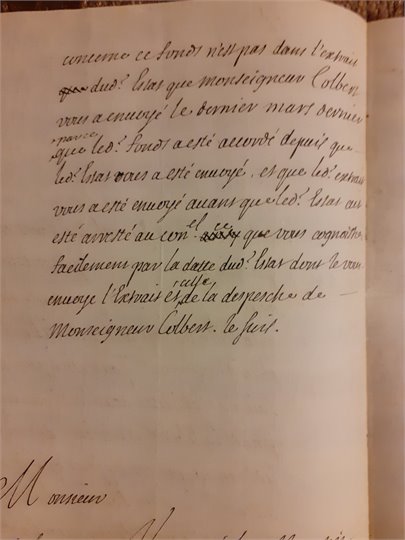 concerne ce fonds n'est pas dans l'extrait
dud.^t Estat que monseigneur Colbert
vous a envoyé le dernier mars dernier
parce
que led.^t fonds a esté accordé depuis que
led.^t Estat vous a esté envoyé, et que led.^t extrait
vous a esté envoyé auant que led.^t Estat eut
esté arresté au con.^el ce que vous cognoitrez
facilement par la datte dud.^t Estat dont Ie vous
envoye l'Extrait et de la despesche de
Monseigneur Colbert. Ie suis.
Monsieur